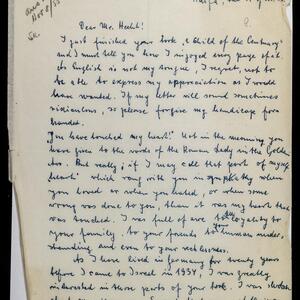 Haifa,
Dear Mr. Hecht!
I just finished your book "A Child of the Century"
and I must tell you how I enjoyed every page of it.
As English is not my tongue, I regret, not to
be able to express my appreciation as I would
have wanted. If my letter will sound sometimes
ridiculous, so please forgive my handicap for
You have touched my heart! Not in the meaning you
have given to the words of the Roman Lady in the Golden
But really, if I may call that part of myself
heart which rang with you in sympathy when
you loved or when you hated, or when some
wrong was done to you, then it was my heart that
was touched. I was full of your loyalty to
your family, to your friends, to human under-
standing and even to your recklessness.
As I have lived in Germany for twenty years
before I came to Israel in 1934, I was greatly
interested in those parts of your book. I was